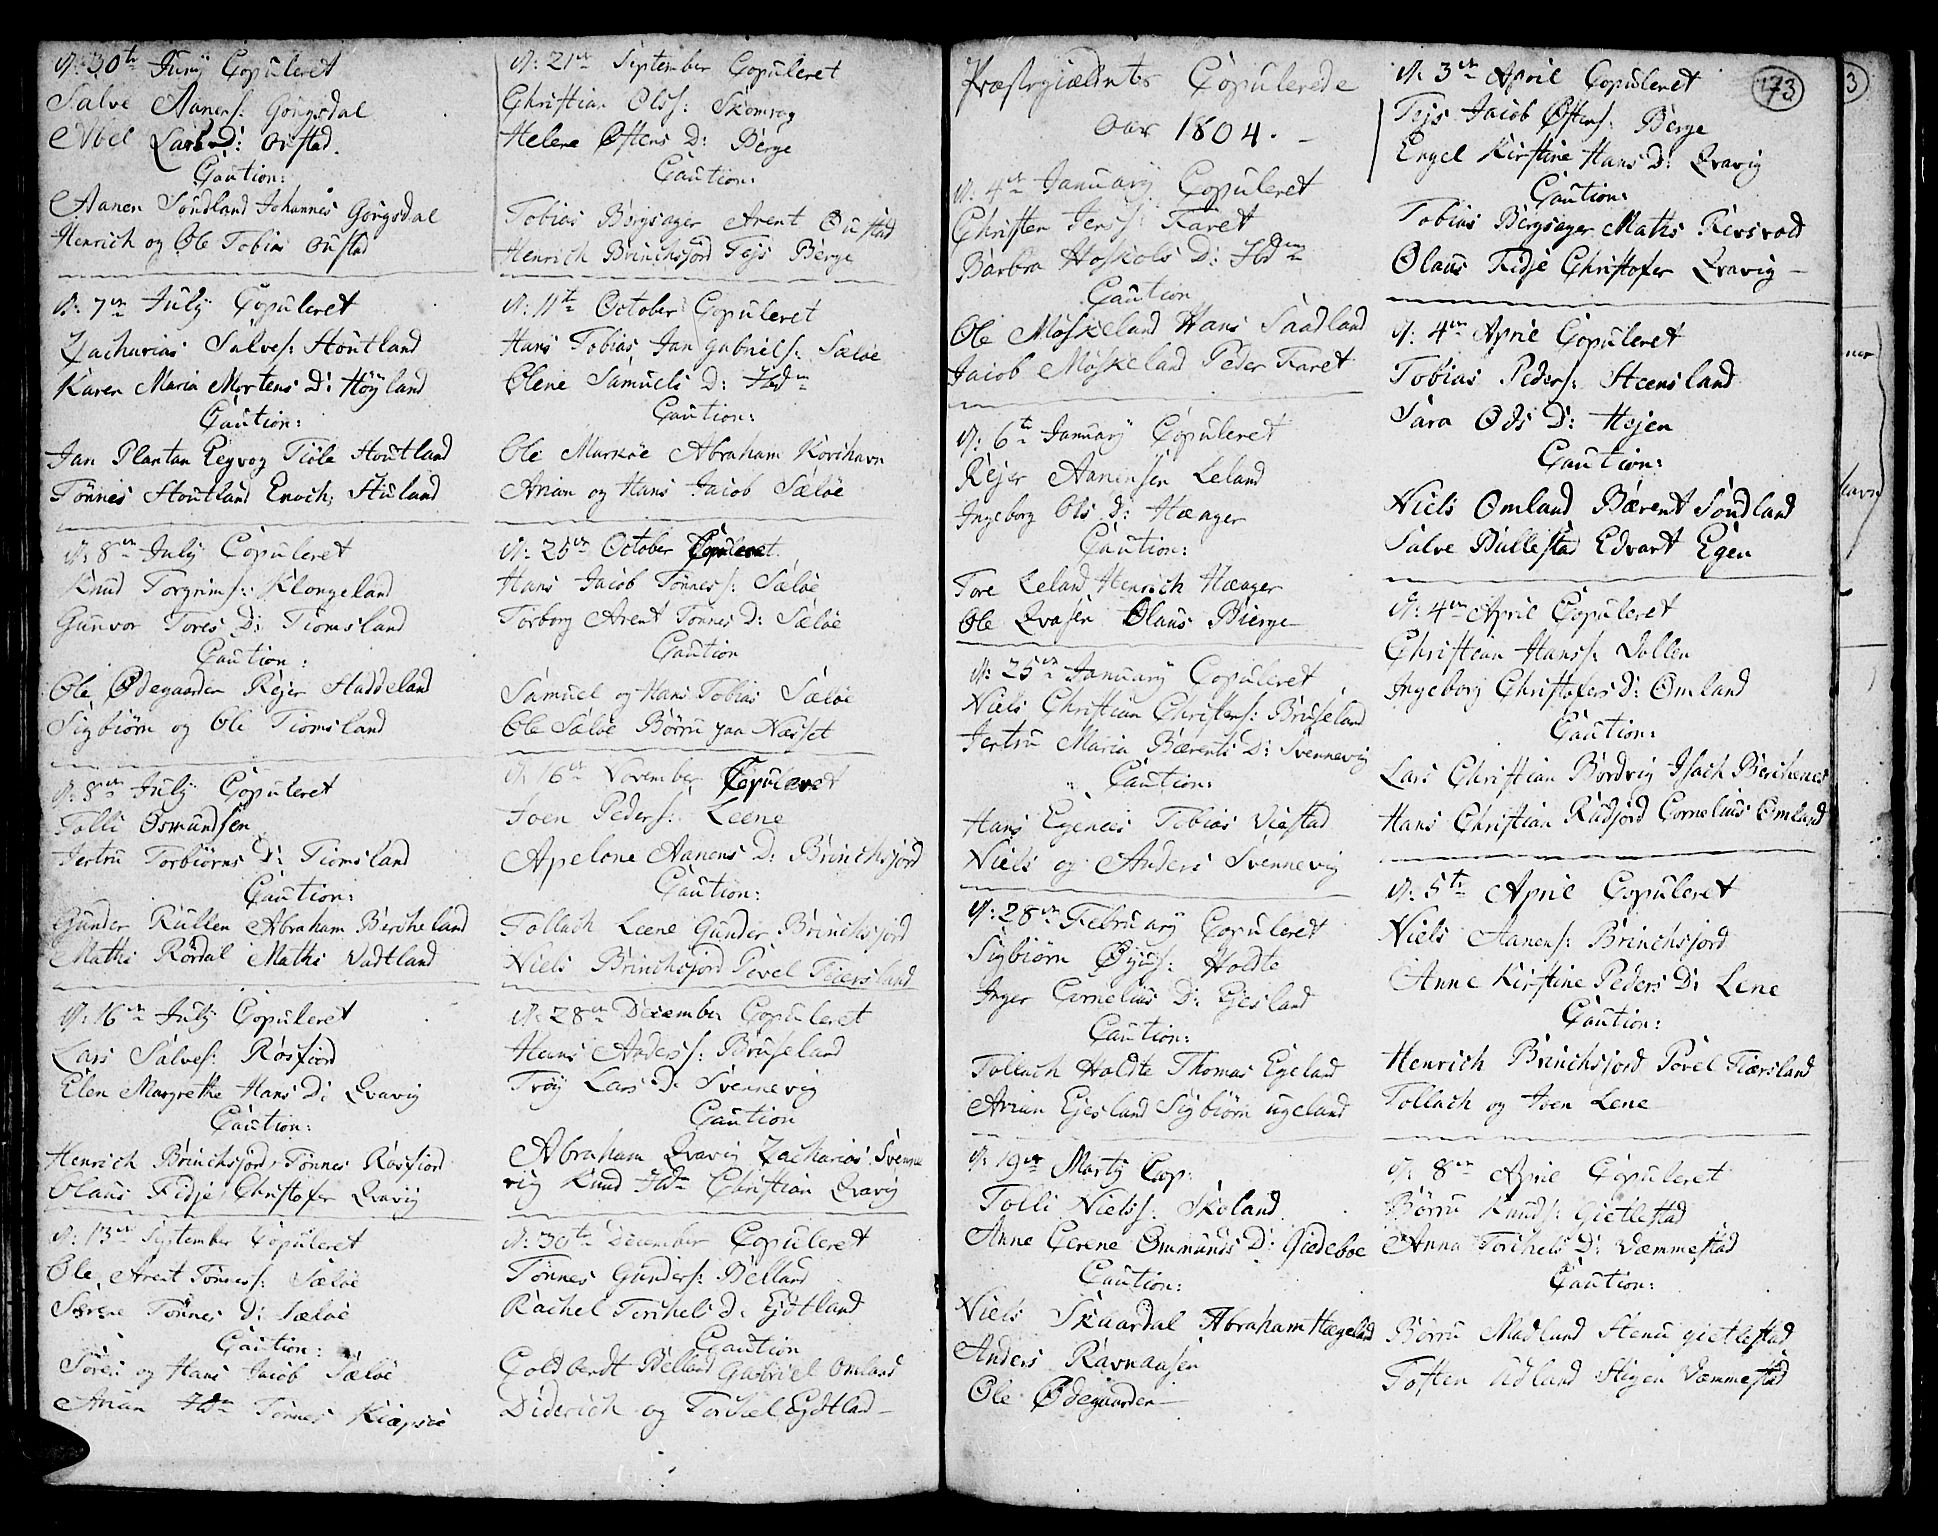 d: 30te Juny Copuleret
Salve Aanens: Göngsdal
Abel Lars D: Oustad.
Caution:
Aanen Söndland Johannes Göngsdal
Henrich og Ole Tobias Oustad
d: 7de July Copuleret
Zacharias Salves: Houtland
Karen Maria Mortens D: Höyland
Caution:
Jan Plantan Eegvog Tiöle Houtland
Tönnes Houtland Enoch Stuland
d: 8de July Copuleret
Knud Torgrims: Klongeland
Gunvor Tores D: Tiomsland
Caution:
Ole Ødegaarden Rejer Haddeland
Sigbiörn og Ole Tiomsland
d: 8de July Copuleret
Tolli Osmundsen
Jertru Torbiörns D: Tiomsland
Caution:
Gunder Kullen Abraham Bircheland
Mathis Rördal Mathis Vadtland
d: 16de July Copuleret
Lars Salves: Rosfiord
Elen Margrethe Hans D: Qvavig
Caution:
Henrich Brinchsjord, Tönnes Rosfiord
Olaus Fidje Christofer Qvavig
d: 13de September Copuleret
Ole Arent Tönnes: Sælöe
Sörene Tönnes D: Sælöe
Caution:
Sören og Hans Jacob Sælöe
Arian Ibdm Tönnes Kiæpsöe
d: 21de September Copuleret
Christian Ols: Skomrag
Helene Østens D: Berge
Caution:
Tobias Bergsager Arent Oustad
Henrich Brinchsjord Tejs Berge
d: 11te October Copuleret
Hans Tobias Jan Gabriels: Sælöe
Olene Samuels D: Ibdm
Caution:
Ole Marköe Abraham Korshavn
Arian og Hans Jacob Sælöe
d: 25de October Copuleret.
Hans Jacob Tönnes: Sælöe
Torborg Arent Tönnes D: Sælöe
Caution
Samuel og Hans Tobias Sælöe
Ole Sælöe Börru paa Næsset
d: 16de November Copuleret
Joen Peders: Leene
Apelone Aanens D: Brinchsjord
Caution:
Tollach Leene Gunder Brinchsjord
Niels Brinchsjord Povel Fiærsland
d: 28de December Copuleret
Hans Anders: Bruseland
Tröy Lars D: Svennevig
Caution
Abraham Qvavig Zacharias Svenne
vig Knud Ibdm Christian Qvavig
d: 30te December Copuleret
Tönnes Gunders: Belland
Rachel Torchels D: Eydtland
Caution
Goldbordt Belland Gabriel Omland
Diderich og Torchel Eydtland
Præstegieldets Copulerede
Aar 1804.
d: 4de January Copuleret
Christen Jens: Faret
Barbra Hoskols D: Ibdm
Caution
Ole Møskeland Hans Saadland
Jacob Møskeland Peder Faret
d: 6te January Copuleret
Rejer Aanensen Leland
Ingeborg Ols D: Hæager
Caution:
Tore Leland Henrich Hæager
Ole Qvasen Olaus Bierge
d: 25de January Copuleret
Niels Christian Christens: Bruseland
Jertru Maria Bærents D: Svennevig
Caution:
Hans Egenes Tobias Viestad
Niels og Anders Svennevig
d: 28de February Copuleret
Sigbiörn Øyus: Holdte
Inger Cornelius D: Ejesland
Caution:
Tollach Holdte Thomas Egeland
Arian Ejesland Sigbiörn Ugeland
d: 19de Marty Cop:
Tolli Niels: Skoland
Anne Gerene Ommunds D: Giedeboe
Caution:
Niels Skaardal Abraham Hægeland
Anders Ravnaasen
Ole Ødegaarden
173
d: 3de April Copuleret
Tejs Jacob Østens: Berge
Engel Kirstine Hans D: Qvavig
Caution:
Tobias Bergsager Mathis Kirsvold
Olaus Fidje Christofer Qvavig
d: 4de April Copuleret
Tobias Peders: Steensland
Sara Ods D: Hejen
Caution:
Niels Omland Bærent Söndland
Salve Bullestad Edvart Egen
d: 4de April Copuleret
Christian Hans: Dollen
Ingeborg Christofers D: Omland
Caution:
Lars Christian Bordvig Isach Berchenes
Hans Christian Rudjord Cornelius Omland
d: 5te April Copuleret
Niels Aanens: Brinchsjord
Anne Kirstine Peders D: Lene
Caution:
Henrich Brinchsjord Povel Fiærsland
Tollach og Joen Lene
d: 8de April Copuleret
Börru Knuds: Gietlestad
Anna Torchels D: Væmmestad
Caution:
Börru Madland Stenu Gietlestad
Tosten Udland Stigen Væmmestad
3